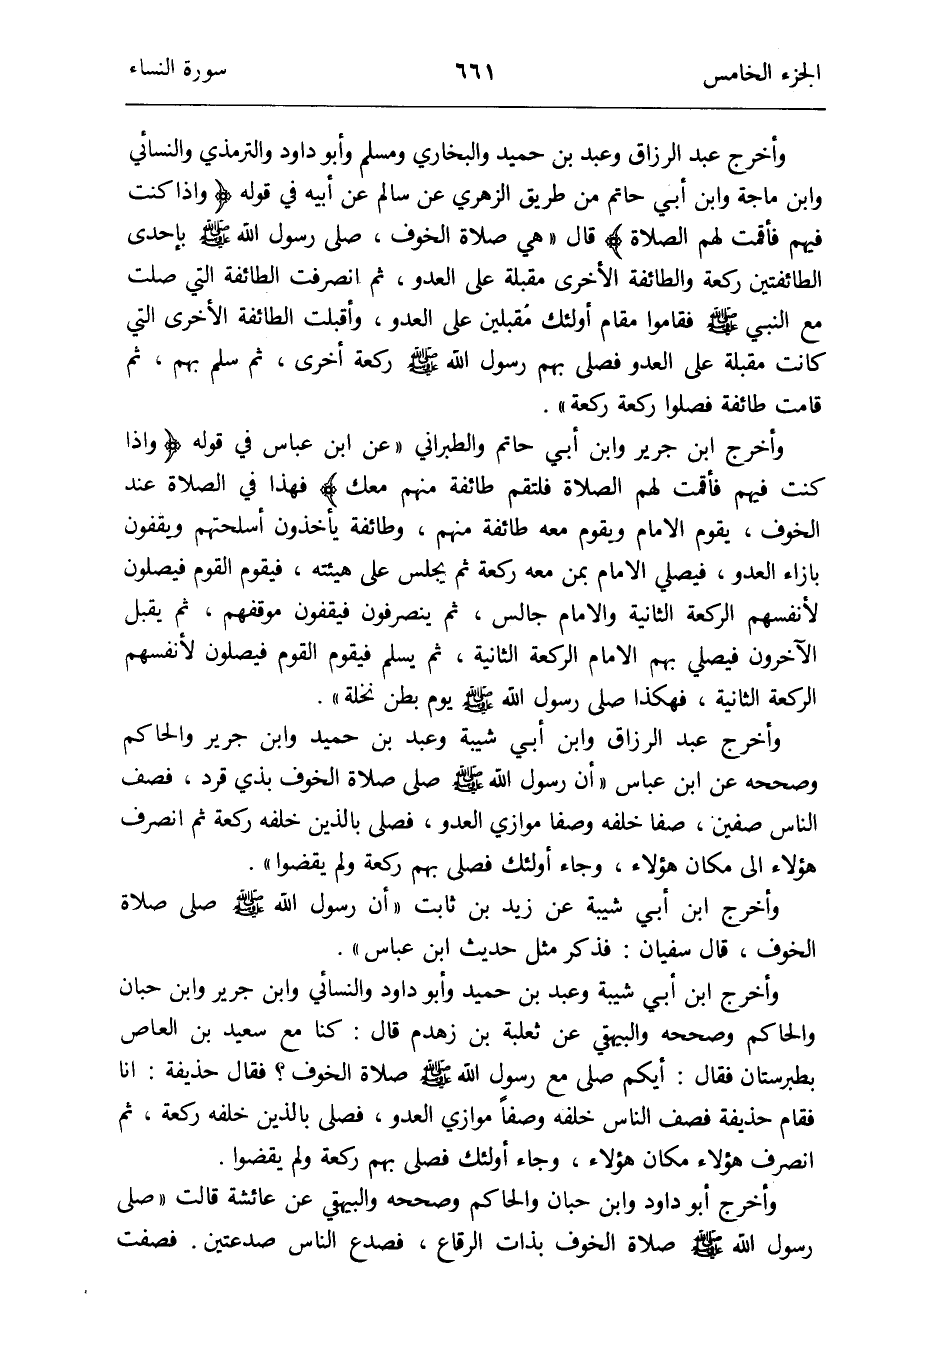 الجزء الخامس ٦٦١ سورة النساء
وأخرج عبد الرزاق وعبد بن حميد والبخاري ومسلم وأبو داود والترمذي والنسائي
وابن ماجة وابن أبي حاتم من طريق الزهري عن سالم عن أبيه في قوله ﴿ واذا كنت
فيهم فأقمت لهم الصلاة ﴾ قال « هي صلاة الخوف ، صلى رسول الله ﷺ بإحدى
الطائفتين ركعة والطائفة الأخرى مقبلة على العدو ، ثم انصرفت الطائفة التي صلت
مع النبي ﷺ فقاموا مقام أولئك مُقبلين على العدو ، وأقبلت الطائفة الأخرى التي
كانت مقبلة على العدو فصلى بهم رسول الله ﷺ ركعة أخرى ، ثم سلم بهم ، ثم
قامت طائفة فصلوا ركعة ركعة » .
وأخرج ابن جرير وابن أبي حاتم والطبراني « عن ابن عباس في قوله ﴿ واذا
كنت فيهم فأقمت لهم الصلاة فلتقم طائفة منهم معك ﴾ فهذا في الصلاة عند
الخوف ، يقوم الامام ويقوم معه طائفة منهم ، وطائفة يأخذون أسلحتهم ويقفون
بازاء العدو ، فيصلي الامام بمن معه ركعة ثم يجلس على هيئته ، فيقوم القوم فيصلون
لأنفسهم الركعة الثانية والامام جالس ، ثم ينصرفون فيقفون موقفهم ، ثم يقبل
الآخرون فيصلي بهم الامام الركعة الثانية ، ثم يسلم فيقوم القوم فيصلون لأنفسهم
الركعة الثانية ، فهكذا صلى رسول الله ﷺ يوم بطن نخلة » .
وأخرج عبد الرزاق وابن أبي شيبة وعبد بن حميد وابن جرير والحاكم
وصححه عن ابن عباس « أن رسول الله ﷺ صلى صلاة الخوف بذي قرد ، فصف
الناس صفين ، صفا خلفه وصفا موازي العدو ، فصلى بالذين خلفه ركعة ثم انصرف
هؤلاء الى مكان هؤلاء ، وجاء أولئك فصلى بهم ركعة ولم يقضوا » .
وأخرج ابن أبي شيبة عن زيد بن ثابت « أن رسول الله ﷺ صلى صلاة
الخوف ، قال سفيان : فذكر مثل حديث ابن عباس » .
وأخرج ابن أبي شيبة وعبد بن حميد وأبو داود والنسائي وابن جرير وابن حبان
والحاكم وصححه والبيهقي عن ثعلبة بن زهدم قال : كنا مع سعيد بن العاص
بطبرستان فقال : أيكم صلى مع رسول الله ﷺ صلاة الخوف ؟ فقال حذيفة : انا
فقام حذيفة فصف الناس خلفه وصفاً موازي العدو ، فصلى بالذين خلفه ركعة ، ثم
انصرف هؤلاء مكان هؤلاء ، وجاء أولئك فصلى بهم ركعة ولم يقضوا .
وأخرج أبو داود وابن حبان والحاكم وصححه والبيهقي عن عائشة قالت « صلى
رسول الله ﷺ صلاة الخوف بذات الرقاع ، فصدع الناس صدعتين . فصفت